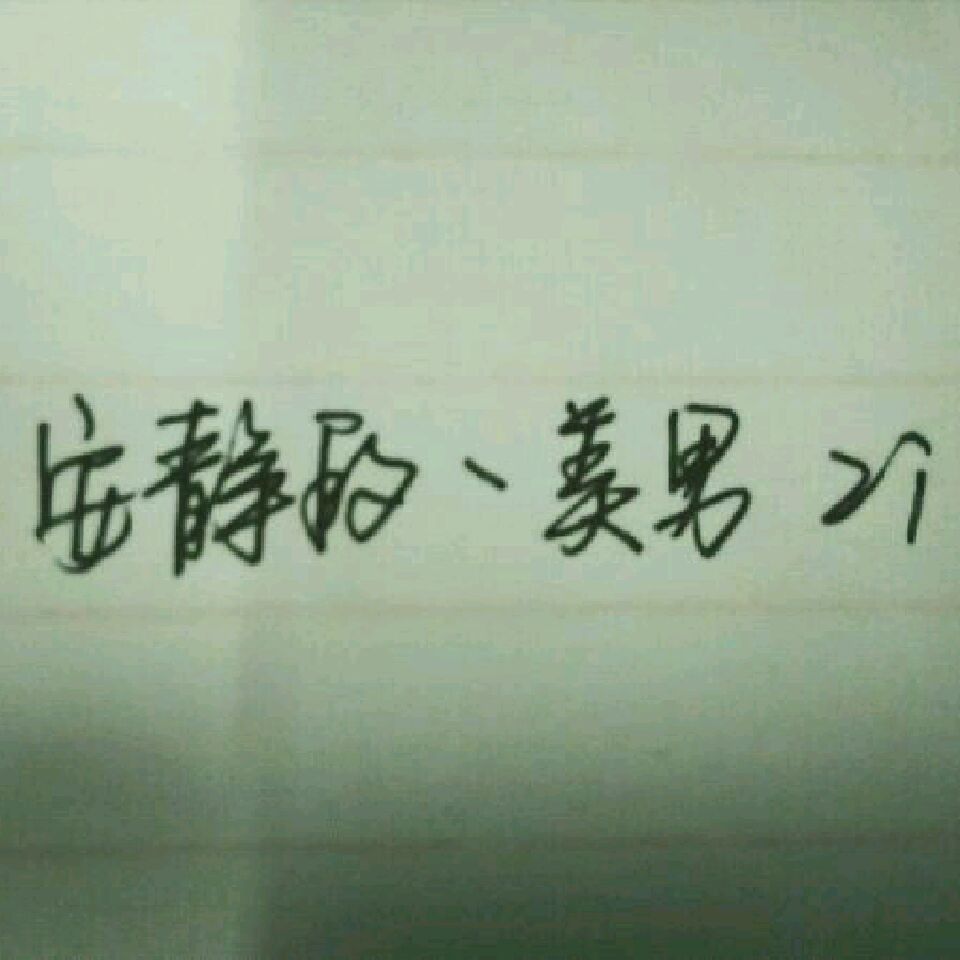 安静的、美男 21